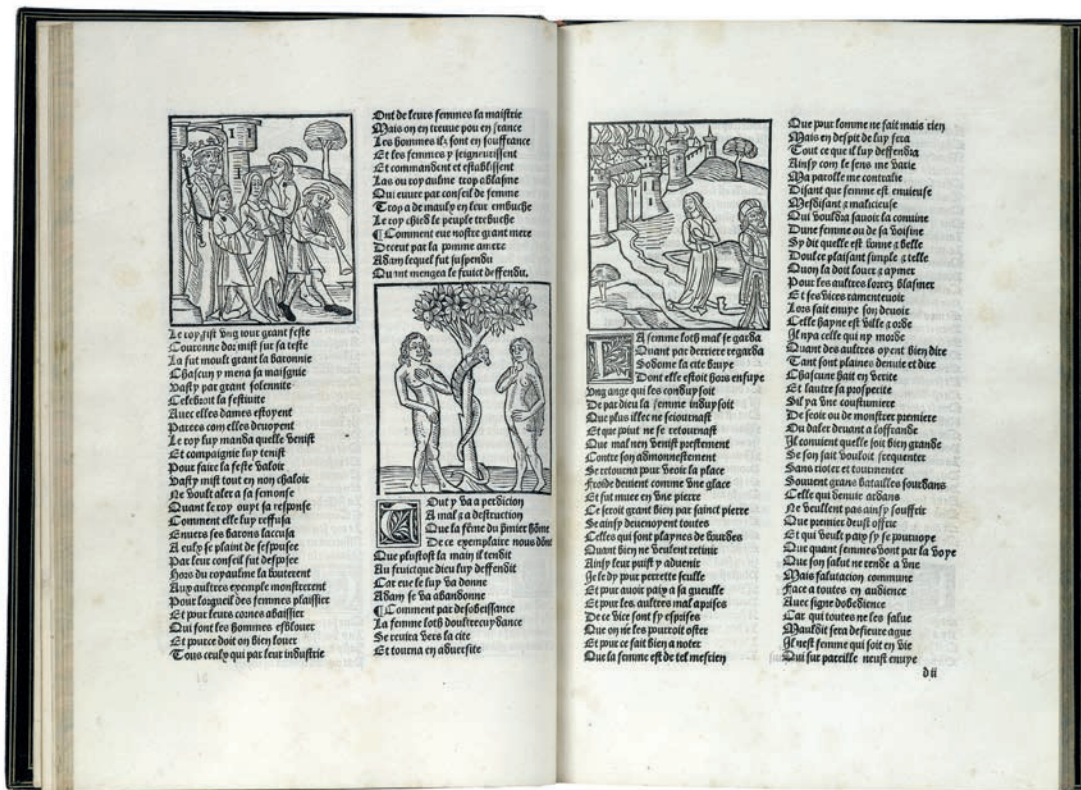 Le roy fist vng iour grant feste
Couronne dor mist sur sa teste
La fut moult grant la baronnie
Chascun y mena sa maisgnie
Vasty par grant solennite
Celebroit la festiuite
Auec elles dames estoyent
Parees com elles deuoyent
Le roy luy manda quelle venist
Et compaignie luy tenist
Pour faire la feste valoir
Vasty mist tout en non chaloir
Ne voult aler a sa semonse
Quant le roy ouyt sa response
Comment elle luy reffusa
Enuers ses barons laccusa
A eulx se plaint de sespousee
Par leur conseil fut desposee
Hors du royaulme la bouterent
Aux aultres exemple monstrerent
Pour lorgueil des femmes plaissier
Et pour leurs cornes abaissier
Qui font les hommes esblouer
Et pource doit on bien louer
Tous ceulx qui par leur industrie
Ont de leurs femmes la maistrie
Mais on en treuue pou en france
Les hommes ilz sont en souffrance
Et les femmes y seigneurissent
Et commandent et establissent
Las ou royaulme trop a blasme
Qui euure par conseil de femme
Trop a de maulx en leur embuche
Le roy chiet le peuple trebuche
¶ Comment eue nostre grant mere
Deceut par la pomme amere
Adam lequel fut suspendu
Quant mengea le fruict deffendu.
Tout y va a perdicion
A mal z a destruction
Que la fēme du p̄mier hōme
De ce exemplaire nous dōne
Que plustost la main il tendit
Au fruict que dieu luy deffendit
Car eue le luy va donne
Adam se va abandonne
¶ Comment par desobeissance
La femme loth doultrecuydance
Se reuira vers la cite
Et tourna en aduersite
La femme loth mal se garda
Quant par derriere regarda
Sodome la cite bruye
Dont elle estoit hors enfuye
Vng ange qui les conduysoit
De par dieu la femme induysoit
Que plus illec ne seiournast
Et que point ne se retournast
Que mal nen venist prestement
Contre son admonnestement
Se retourna pour veoir la place
Froide deuient comme vne glace
Et fut muee en vne pierre
Ce seroit grant bien par sainct pierre
Se ainsy deuenoyent toutes
Celles qui sont playnes de bourdes
Quant bien ne veulent retinir
Ainsy leur puist y aduenir
Ie le dy pour perrette seulle
Et pour auoir paix a sa gueulle
Et pour les aultres mal aprises
De ce vice sont sy esprises
Que on ne les pourroit oster
Et pour ce fait bien a noter
Que la femme est de tel mesrien
Que pour lomme ne fait mais rien
Mais en despit de luy fera
Tout ce que il luy deffendra
Ainsy com le sens me varie
Ma parolle me contralie
Disant que femme est enuieuse
Mesdisant z malicieuse
Qui vouldra sauoir la conuine
Dune femme ou de sa voisine
Sy dit quelle est bonne z belle
Doulce plaisant simple z telle
Quon la doit louer z aymer
Pour les aultres lorrez blasmer
Et ses vices ramenteuoir
Lors fait enuye son deuoir
Celle hayne est ville z orde
Il nya celle qui ny morde
Quant des aultres oyent bien dire
Tant sont plaines denuie et dire
Chascune hait en verite
Et lautre sa prosperite
Sil ya vne coustumiere
De seoir ou de monstrer premiere
Ou daler deuant a loffrande
Il conuient quelle soit bien grande
Se son fait vouloit frequenter
Sans rioter et tourmenter
Souuent grans batailles sourdans
Celle qui denuie ardans
Ne veullent pas ainsy souffrir
Que premier deust offrir
Et qui veult paix sy se pouruoye
Que quant femmes vont par la voye
Que son salut ne rende a vne
Mais salutacion commune
Face a toutes en audience
Auec signe dobedience
Car qui toutes ne les salue
Mauldit sera de fieure ague
Il nest femme qui soit en vie
Qui sur pareille neust enuye
d ii